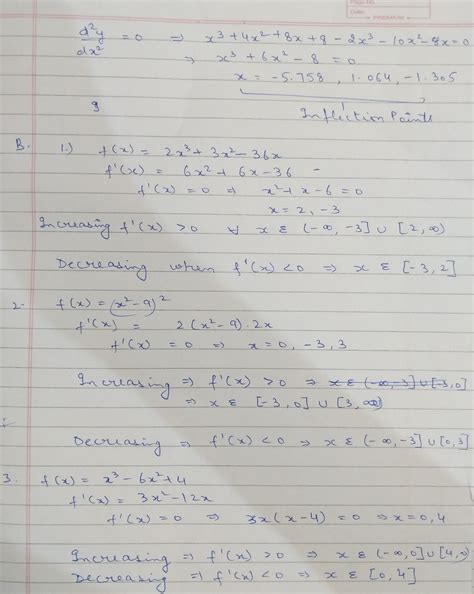 Page No.
Date:
d²y/dx² = 0 ⇒ x³ + 4x² + 8x + 8 - 2x³ - 10x² - 8x = 0
⇒ x³ + 6x² - 8 = 0
x = -5.758, 1.064, -1.305
Inflection Points
B. 1.) f(x) = 2x³ + 3x² - 36x
f'(x) = 6x² + 6x - 36
f'(x) = 0 ⇒ x² + x - 6 = 0
x = 2, -3
Increasing f'(x) > 0 ∀ x ε (-∞, -3] ∪ [2, ∞)
Decreasing when f'(x) < 0 ⇒ x ε [-3, 2]
2- f(x) = (x² - 9)²
f'(x) = 2(x² - 9) · 2x
f'(x) = 0 ⇒ x = 0, -3, 3
Increasing ⇒ f'(x) > 0 ⇒ x ε (-∞, -3] ∪ [-3, 0]
⇒ x ε [-3, 0] ∪ [3, ∞)
Decreasing ⇒ f'(x) < 0 ⇒ x ε (-∞, -3] ∪ [0, 3]
3. f(x) = x³ - 6x² + 4
f'(x) = 3x² - 12x
f'(x) = 0 ⇒ 3x(x - 4) = 0 ⇒ x = 0, 4
Increasing ⇒ f'(x) > 0 ⇒ x ε (-∞, 0] ∪ [4, ∞)
Decreasing ⇒ f'(x) < 0 ⇒ x ε [0, 4]